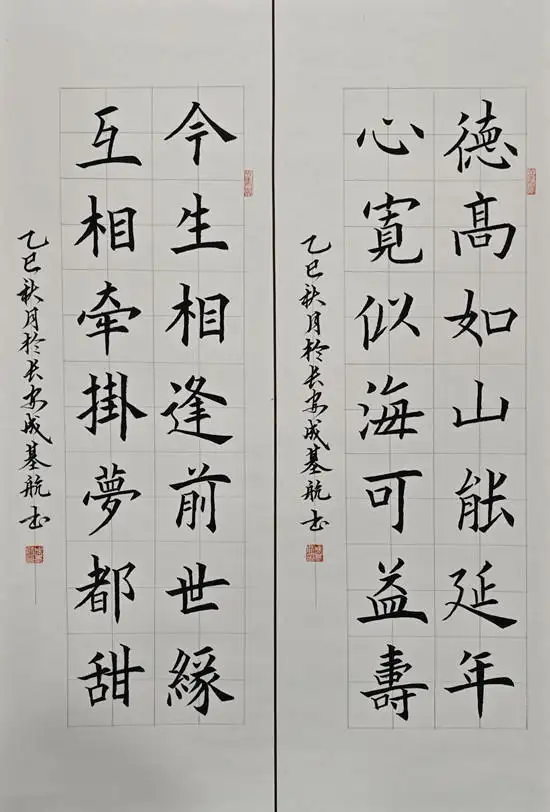 德高如山能延年
心寬似海可益壽
乙巳秋月於长安成基航书
今生相逢前世緣
互相牵掛夢都甜
乙巳秋月於长安成基航书